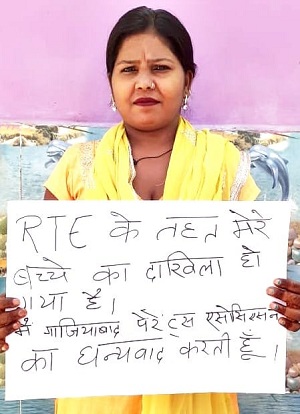 RTE के तहत मेरे
बच्चे का दाखिला हो
गया है।
मैं गाजियाबाद पैरेंट्स एसोसिएसन
का धन्यवाद करती हूँ।